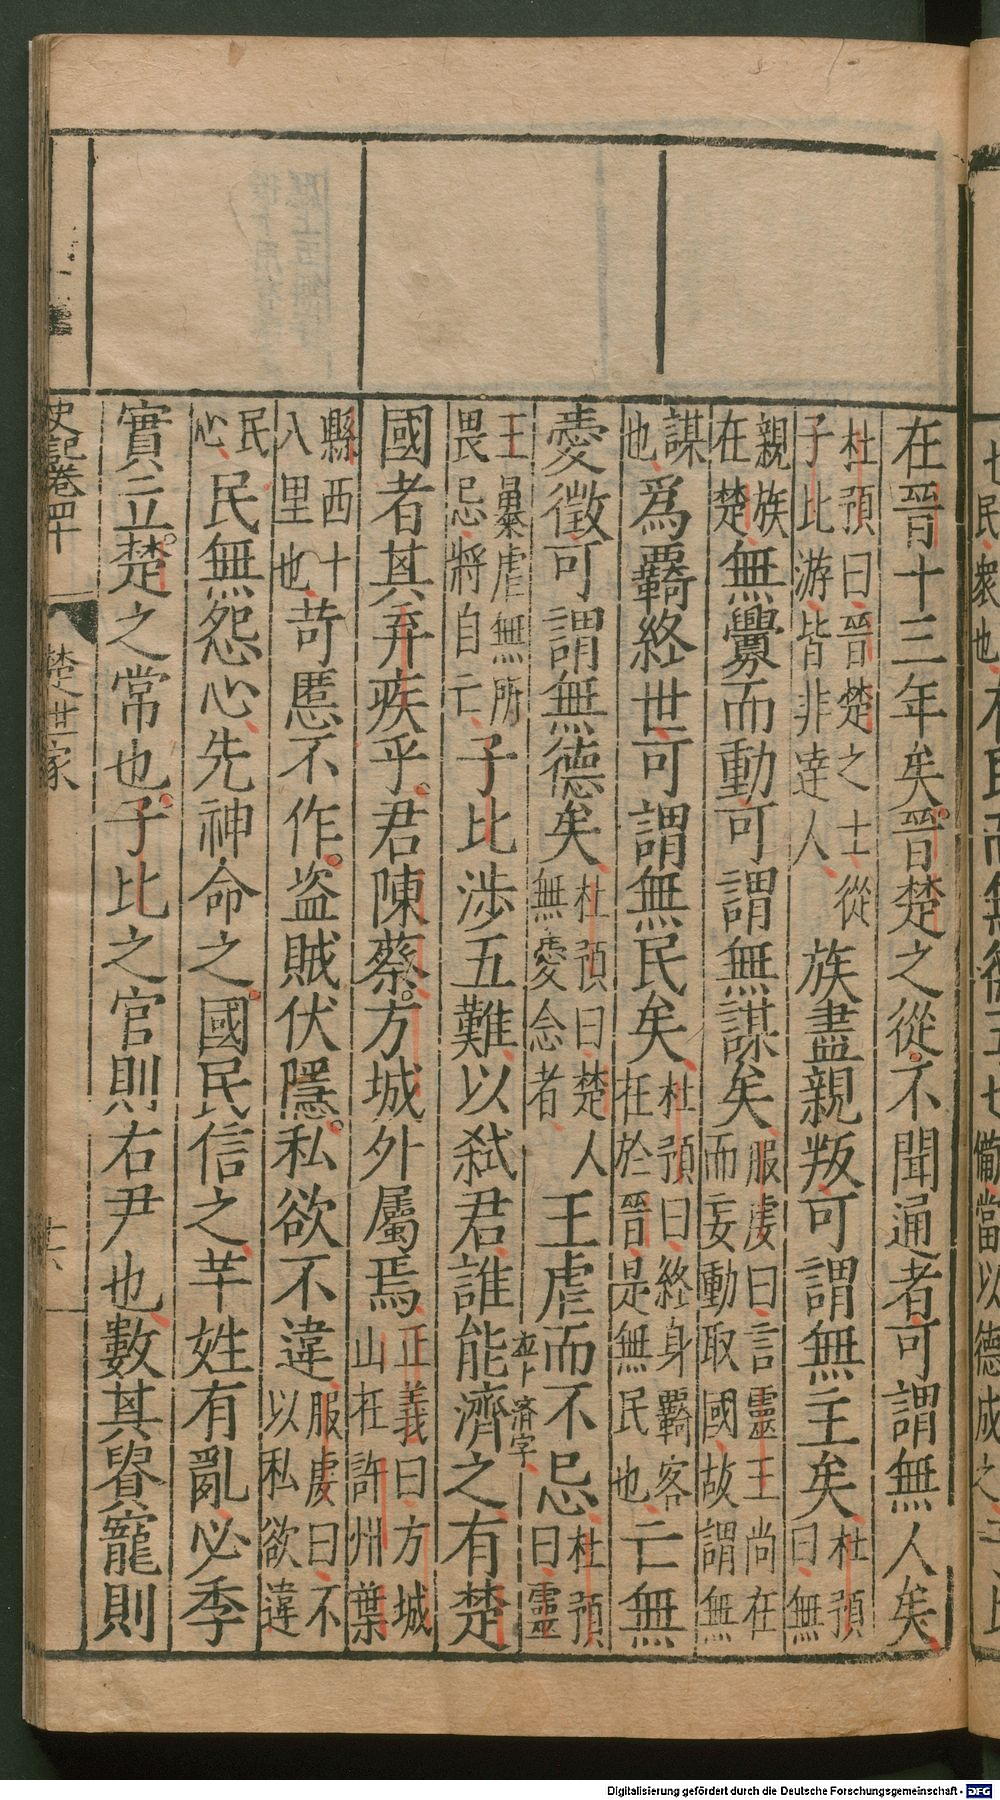 在晉十三年矣晉楚之從不聞通者可謂無人矣
杜預曰晉楚之士從
子比游皆非達人
族盡親叛可謂無主矣
杜預曰無
親族在楚
無釁而動可謂無謀矣
服虔曰言靈王尚在
而妄動取國故謂無
謀也
爲羇終世可謂無民矣
杜預曰終身羇客
在於晉是無民也
亡無
愛徵可謂無德矣
杜預曰楚人
無愛念者
王虐而不忌
杜預曰靈
王暴虐無所
畏忌將自亡
子比涉五難以弑君誰能濟之有楚
國者其弃疾乎君陳蔡方城外屬焉
正義曰方城
山在許州葉
縣西十
八里也
苛慝不作盜賊伏隱私欲不違
服虔曰不
以私欲違
民心
民無怨心先神命之國民信之芊姓有亂必季
實立楚之常也子比之官則右尹也數其貴寵則
史記卷四十
楚世家
民衆也
備當以德成之
Digitalisierung gefördert durch die Deutsche Forschungsgemeinschaft - DFG